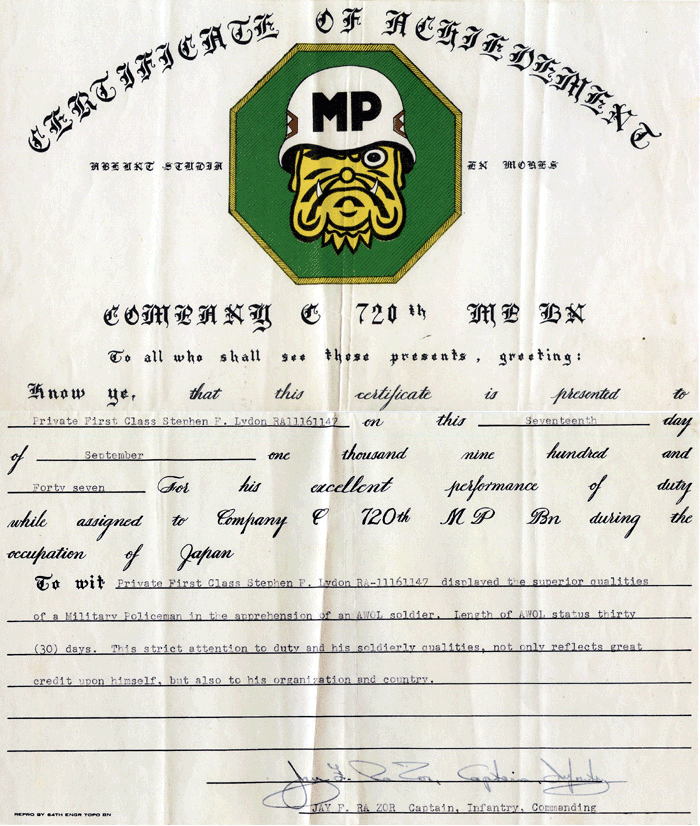 CERTIFICATE OF ACHIEVEMENT
MP
ABEUNT STUDIA EN MORES
COMPANY C 720th MP BN
To all who shall see these presents, greeting:
Know ye, that this certificate is presented to
Private First Class Stephen F. Lydon RA11161147 on this Seventeenth day
of September one thousand nine hundred and
Forty seven For his excellent performance of duty
while assigned to Company C 720th MP Bn during the
occupation of Japan
To wit Private First Class Stephen F. Lydon RA-11161147 displayed the superior qualities
of a Military Policeman in the apprehension of an AWOL soldier. Length of AWOL status thirty
(30) days. This strict attention to duty and his soldierly qualities, not only reflects great
credit upon himself, but also to his organization and country.
Jay F. Ra Zor, Captain, Infantry
JAY F. RA ZOR Captain, Infantry, Commanding
REPRO BY 64TH ENGR TOPO BN